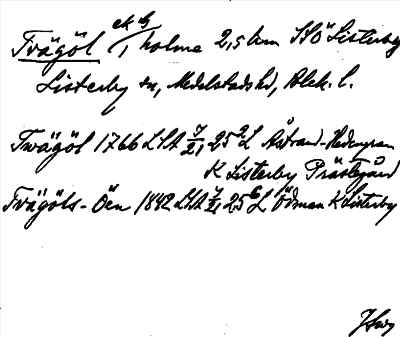 Tvägöl ek h/1 holme 2,5 km NÖ Listerby
Listerby sn, Medelstads hd, Blek. l.
Twägöl 1766 LSA 7/2, 25² L Åstrand-Hedengran
K Listerby Prästgård
Tvägöls-Öen 1842 LSA 7/2, 25⁶ L Ödman K Listerby